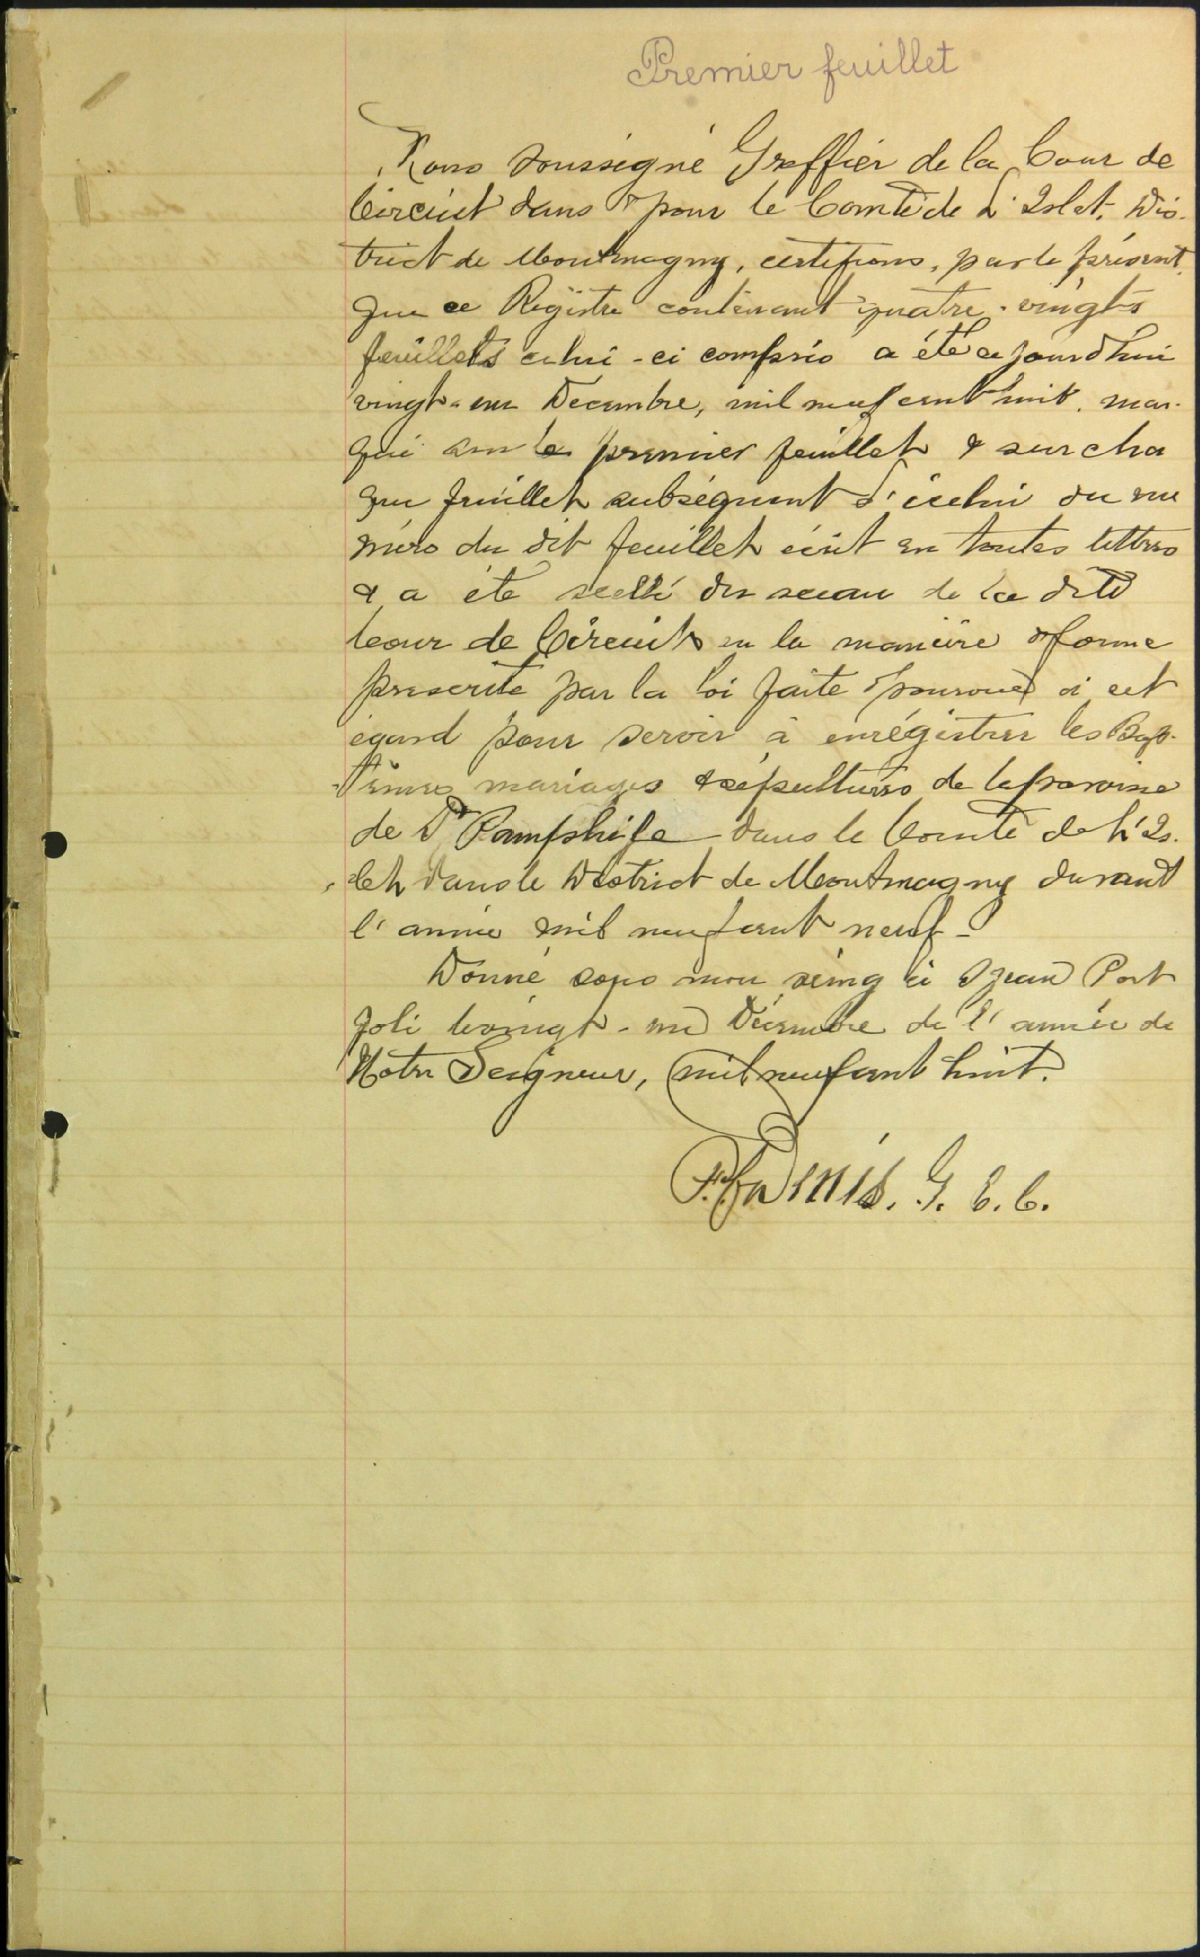 Premier feuillet
Nous soussigné Greffier de la Cour de
Circuit dans & pour le Comté de L'Islet, Dis-
trict de Montmagny, certifions, par le présent,
que ce Régistre contenant quatre-vingts
feuillets celui-ci compris a été ce jourd'hui
vingt-un Decembre, mil neuf cent huit, mar-
qué sur le premier feuillet & sur cha
que feuillet subséquent d'icelui du nu
méro du dit feuillet écrit en toutes lettres
& a été scellé du sceau de la dite
Cour de Circuit en la manière & forme
prescrite par la loi faite & pourvue à cet
égard pour servir à enrégistrer les Bap-
têmes mariages & sépultures de la paroisse
de St Pamphile dans le Comté de L'Is-
let dans le District de Montmagny durant
l'année mil neuf cent neuf-
Donné sous mon seing à St Jean Port
Joli ce vingt-un Décembre de l'année de
Notre Seigneur, mil neuf cent huit.
Denis. G. C. C.